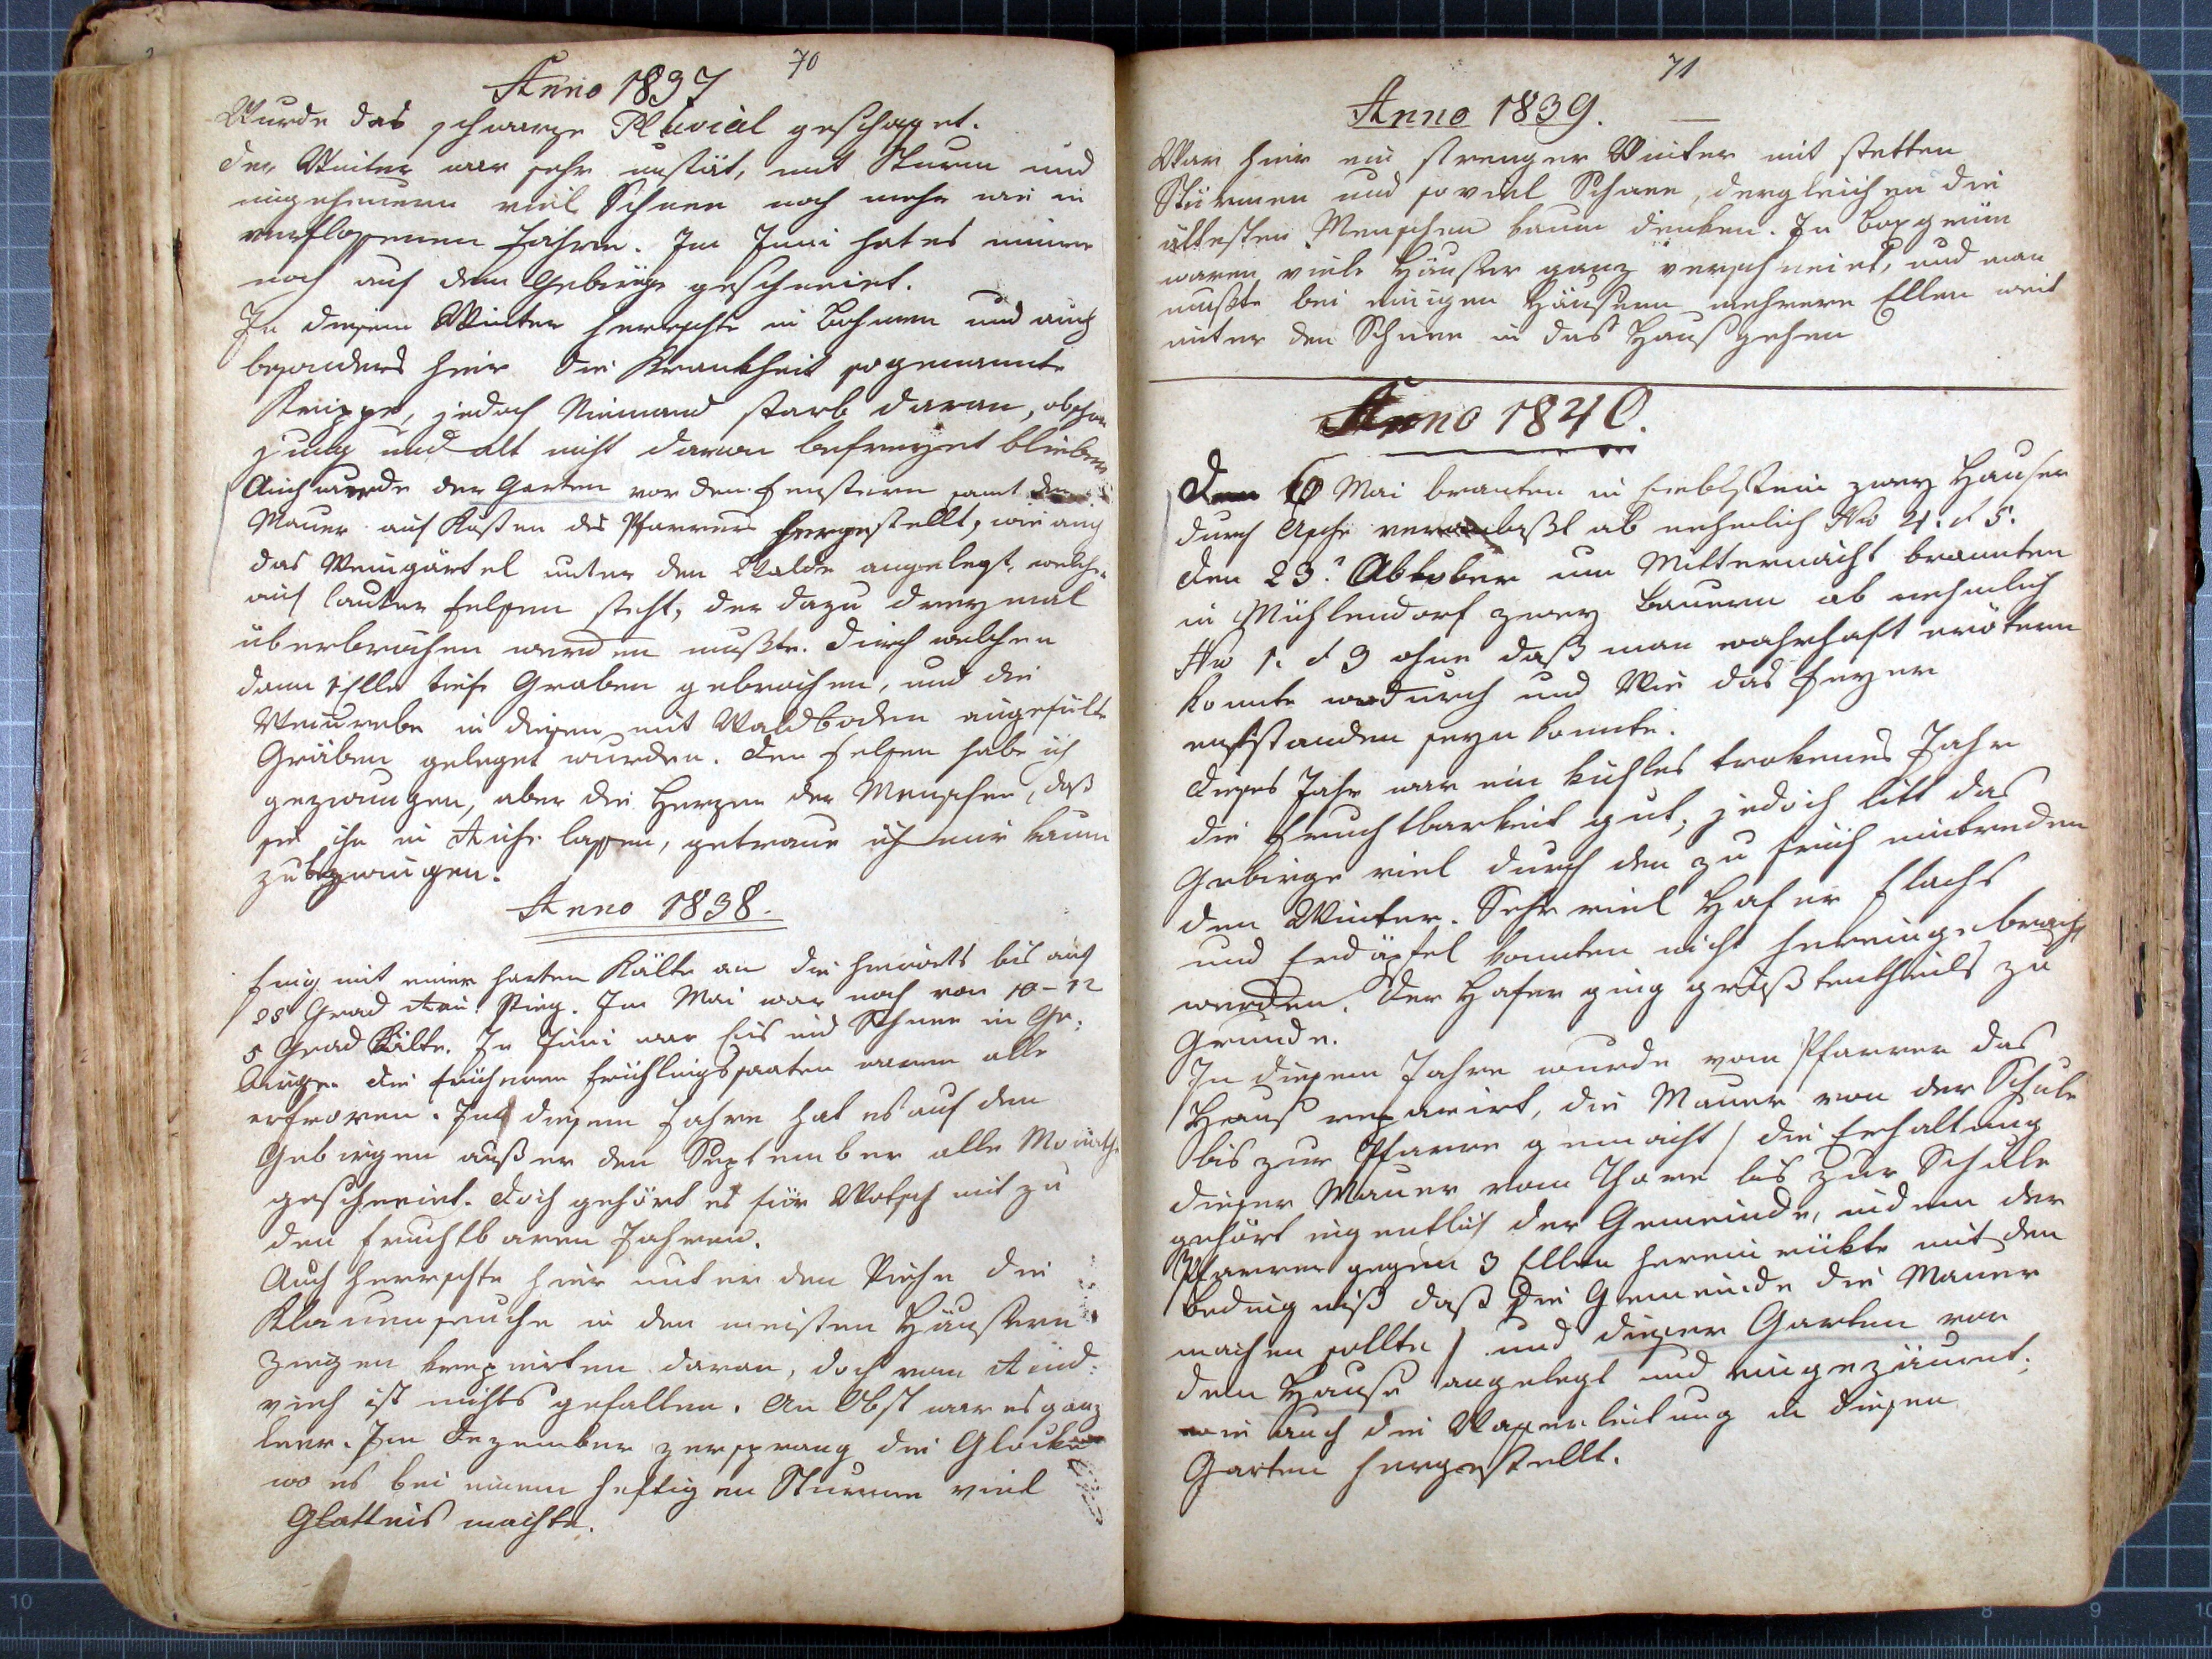 70
Anno 1837
Wurde das schwarze Pluvial geschaft.
Der Winter war sehr unstät, mit Sturm und
ungeheuern viel Schnee noch mehr wie in
verflossenen Jahre. Im Juni hat es immer
noch auf dem Gebirge geschneiet.
In diesem Winter herrschte in Bohmen und auch
besonders hier die Krankheit sogenannte
Krippe, jedoch Niemand starb daran, obschon
jung und alt nicht davon befreyet blieben
Auch wurde der Garten vor den Fenstern samt der
Mauer auf Kosten des Pfarrers hergestellt, wie auch
das Weingärtel unter dem Walde angelegt, welches
auf lauter Felsen steht, der dazu dreymal
überbrochen werden mußte. Durch welchen
dann 1 Elle tiefe Graben gebrochen, und die
Weinrebe in diesen mit Waldboden angefülte
Gräben geleget wurden. Den Felsen habe ich
gezwungen, aber die Herzen der Menschen, daß
sie ihn in Ruhe lassen, getraue ich mir kaum
zubezwingen.
Anno 1838.
Fing mit einer harten Kälte an die hierorts bis auf
28 Grad Reau. stieg. Im Mai war noch von 10-12
5 Grad Kälte. In Juni war Eis und Schnee in Ge-
birge. Die früheren Frühlingssaaten waren alle
erfroren. In diesem Jahre hat es auf den
Gebirgen außer den September alle Monathe
geschneiet. Doch gehört es für Wotsch mit zu
den fruchtbaren Jahren.
Auch herrschte hier unter den Viehe die
Klauenseuche in den meisten Häusern
Ziegen krepierten daran, doch vom Rind-
vieh ist nichts gefallen. An Obst war es ganz
leer. Im Dezember zersprang die Glocke
wo es bei einem heftigen Sturme viel
Glatteis machte.
71
Anno 1839.
War hier ein strenger Winter mit stetten
Stürmen und soviel Schnee, dergleichen die
ältesten Menschen kaum denken. In
waren viele Häuser ganz verschneiet, und man
mußte bei einigen Häusern mehrere Ellen weit
unter den Schnee in das Haus gehen
Anno 1840.
Den 6 Mai branten in zwey Hauser
durch Asche veranlaßt ab nehmlich Nro 4. & 5.
Den 23. Oktober um Mitternacht brannten
in Mühlendorf zwey Bauern ab nehmlich
Nro 1. & 3 ohne daß man wahrhaft erötern
konnte wodurch und Wie das Feyer
entstanden seyn konnte.
Dieses Jahr war ein kühles trokenes Jahr
die Fruchtbarkeit gut, jedoch litt das
Gebirge viel durch den zu früh eintreden
den Winter. Sehr viel Hafer Flachs
und Erdäpfel konnten nicht hereingebracht
werden. Der Hafer ging größtentheils zu
Grunde.
In diesem Jahre wurde vom Pfarrer das
Haus reparirt, die Mauer von der Schule
bis zur Pfarre gemacht / die Erhaltung
dieser Mauer vom Thore bis zur Schule
gehört eigentlich der Gemeinde, indem der
Pfarrer gegen 3 Ellen herein rükte mit den
Bedingniß daß die Gemeinde die Mauer
machen sollte / und dieser Garten vor
dem Hause angelegt und eingezäunt;
wie auch die Wasserleitung in diesen
Garten hergestellt.